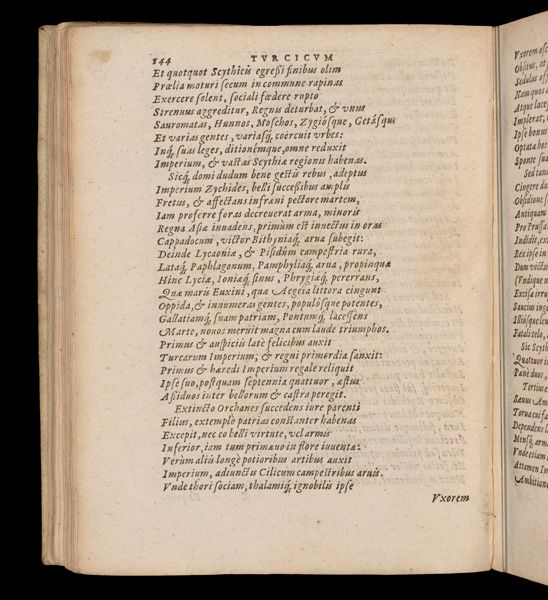 144 TVRCICVM
Et quotquot Scythicis egreßi finibus olim
Prælia moturi secum in commune rapinas
Exercere solent, sociali fœdere rupto
Strenuus aggreditur, Regnis deturbat, & vnus
Sauromatas, Hunnos, Moschos, Zygiósque, Getásqui
Et varias gentes, variasq́, coërcuit vrbes:
Inq́, suas leges, ditionémque, omne reduxit
Imperium, & vastas Scythiæ regionis habenas.
Sicq́, domi dudum bene gestis rebus, adeptus
Imperium Zychides, belli succeßibus amplis
Fretus, & affectans infræni pectore martem,
Iam proferre foras decreuerat arma, minoris
Regna Asiæ inuadens, primùm est inuectus in oras
Cappadocum, victor Bithyniaq́, arua subegit:
Deinde Lycaoniæ, & Pisidûm campestria rura,
Lataq́, Paphlagonum, Pamphyliaq́, arua, propinquæ
Hinc Lyciæ, Ioniæq́, sinus, Phrygiæq́, pererrans,
Quæ maris Euxini, quæ Aegeia littora cingunt
Oppida, & innumeras gentes, populósque potentes,
Gallatiamq́, suam patriam, Pontumq́, lacessens
Marte, nouos meruit magna cum laude triumphos.
Primus & auspiciis latè felicibus auxit
Turcarum Imperium, & regni primordia sanxit:
Primus & hæredi Imperium regale reliquit
Ipse suo, postquam septennia quattuor, æstus
Aßiduos inter bellorum & castra peregit.
Extincto Orchanes succedens iure parenti
Filius, extemplò patrias constanter habenas
Excepit, nec eo belli virtute, vel armis
Inferior, iam tum primæuo in flore iuuentæ:
Verùm aliis longè potioribus artibus auxit
Imperium, adiunctis Cilicum campestribus aruis.
Vnde thori sociam, thalamiq́, ignobilis ipse
Vxorem